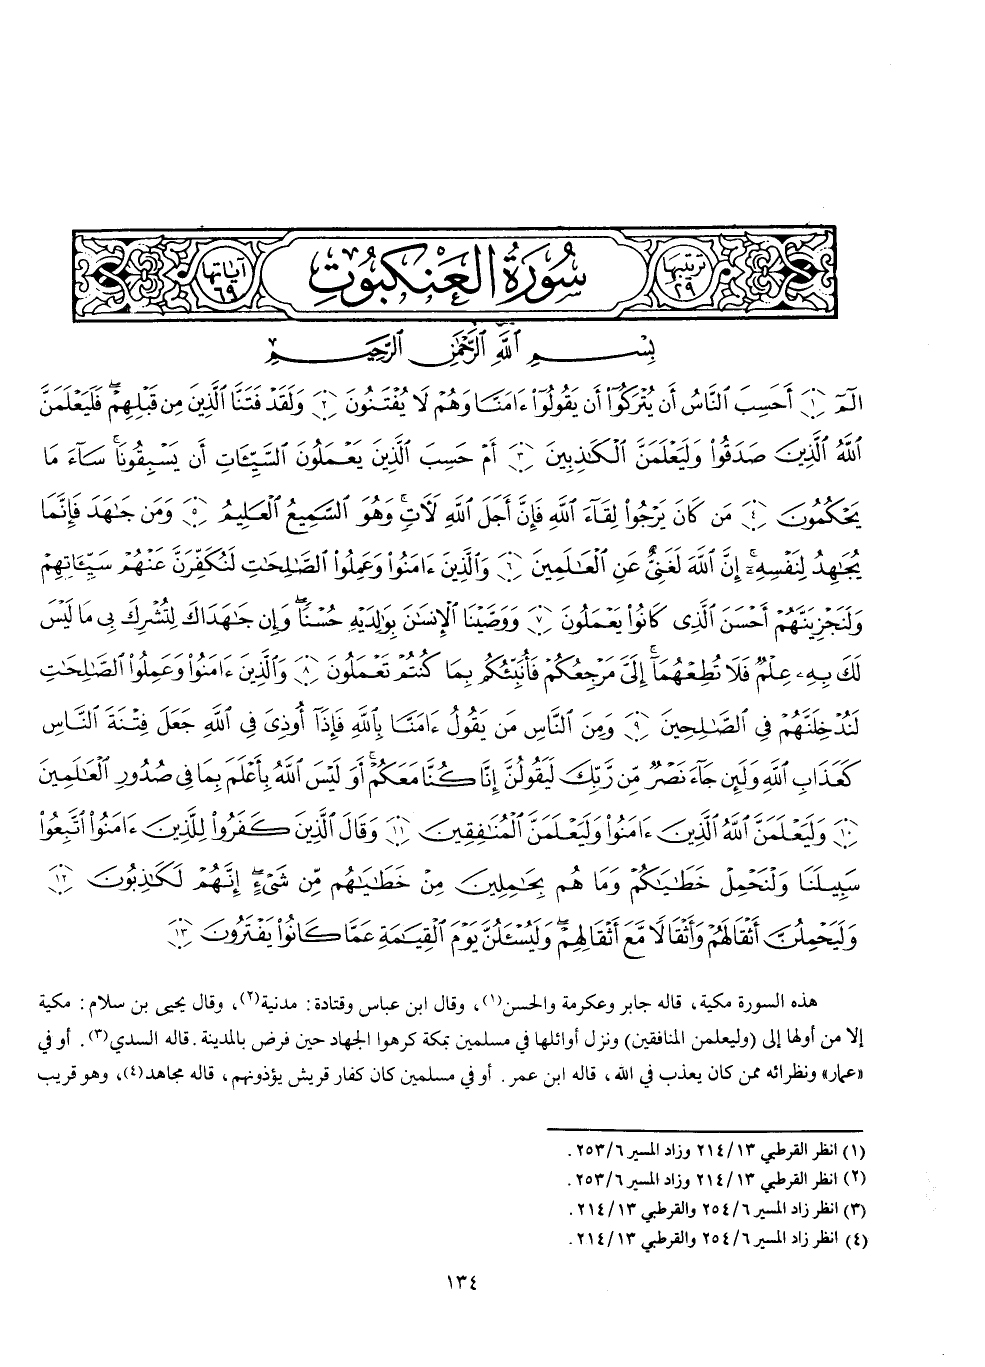 ترتيبها ٢٩
سُورَةُ العَنْكبُوتِ
آياتها ٦٩
بِسْمِ ٱللَّهِ ٱلرَّحْمَٰنِ ٱلرَّحِيمِ
الٓمٓ ١ أَحَسِبَ ٱلنَّاسُ أَن يُتْرَكُوٓا۟ أَن يَقُولُوٓا۟ ءَامَنَّا وَهُمْ لَا يُفْتَنُونَ ٢ وَلَقَدْ فَتَنَّا ٱلَّذِينَ مِن قَبْلِهِمْ ۖ فَلَيَعْلَمَنَّ
ٱللَّهُ ٱلَّذِينَ صَدَقُوا۟ وَلَيَعْلَمَنَّ ٱلْكَٰذِبِينَ ٣ أَمْ حَسِبَ ٱلَّذِينَ يَعْمَلُونَ ٱلسَّيِّـَٔاتِ أَن يَسْبِقُونَا ۚ سَآءَ مَا
يَحْكُمُونَ ٤ مَن كَانَ يَرْجُوا۟ لِقَآءَ ٱللَّهِ فَإِنَّ أَجَلَ ٱللَّهِ لَـَٔاتٍ ۚ وَهُوَ ٱلسَّمِيعُ ٱلْعَلِيمُ ٥ وَمَن جَٰهَدَ فَإِنَّمَا
يُجَٰهِدُ لِنَفْسِهِۦٓ ۚ إِنَّ ٱللَّهَ لَغَنِىٌّ عَنِ ٱلْعَٰلَمِينَ ٦ وَٱلَّذِينَ ءَامَنُوا۟ وَعَمِلُوا۟ ٱلصَّٰلِحَٰتِ لَنُكَفِّرَنَّ عَنْهُمْ سَيِّـَٔاتِهِمْ
وَلَنَجْزِيَنَّهُمْ أَحْسَنَ ٱلَّذِى كَانُوا۟ يَعْمَلُونَ ٧ وَوَصَّيْنَا ٱلْإِنسَٰنَ بِوَٰلِدَيْهِ حُسْنًا ۖ وَإِن جَٰهَدَاكَ لِتُشْرِكَ بِى مَا لَيْسَ
لَكَ بِهِۦ عِلْمٌ فَلَا تُطِعْهُمَآ ۚ إِلَىَّ مَرْجِعُكُمْ فَأُنَبِّئُكُم بِمَا كُنتُمْ تَعْمَلُونَ ٨ وَٱلَّذِينَ ءَامَنُوا۟ وَعَمِلُوا۟ ٱلصَّٰلِحَٰتِ
لَنُدْخِلَنَّهُمْ فِى ٱلصَّٰلِحِينَ ٩ وَمِنَ ٱلنَّاسِ مَن يَقُولُ ءَامَنَّا بِٱللَّهِ فَإِذَآ أُوذِىَ فِى ٱللَّهِ جَعَلَ فِتْنَةَ ٱلنَّاسِ
كَعَذَابِ ٱللَّهِ وَلَئِن جَآءَ نَصْرٌ مِّن رَّبِّكَ لَيَقُولُنَّ إِنَّا كُنَّا مَعَكُمْ ۚ أَوَ لَيْسَ ٱللَّهُ بِأَعْلَمَ بِمَا فِى صُدُورِ ٱلْعَٰلَمِينَ
١٠ وَلَيَعْلَمَنَّ ٱللَّهُ ٱلَّذِينَ ءَامَنُوا۟ وَلَيَعْلَمَنَّ ٱلْمُنَٰفِقِينَ ١١ وَقَالَ ٱلَّذِينَ كَفَرُوا۟ لِلَّذِينَ ءَامَنُوا۟ ٱتَّبِعُوا۟
سَبِيلَنَا وَلْنَحْمِلْ خَطَٰيَٰكُمْ وَمَا هُم بِحَٰمِلِينَ مِنْ خَطَٰيَٰهُم مِّن شَىْءٍ ۖ إِنَّهُمْ لَكَٰذِبُونَ ١٢
وَلَيَحْمِلُنَّ أَثْقَالَهُمْ وَأَثْقَالًا مَّعَ أَثْقَالِهِمْ ۖ وَلَيُسْـَٔلُنَّ يَوْمَ ٱلْقِيَٰمَةِ عَمَّا كَانُوا۟ يَفْتَرُونَ ١٣
هذه السورة مكية، قاله جابر وعكرمة والحسن(١)، وقال ابن عباس وقتادة: مدنية(٢)، وقال يحيى بن سلام: مكية
إلا من أولها إلى (وليعلمن المنافقين) ونزل أوائلها في مسلمين بمكة كرهوا الجهاد حين فرض بالمدينة. قاله السدي(٣). أو في
«عمار» ونظرائه ممن كان يعذب في الله، قاله ابن عمر. أو في مسلمين كان كفار قريش يؤذونهم، قاله مجاهد(٤)، وهو قريب
(١) انظر القرطبي ٢١٤/١٣ وزاد المسير ٢٥٣/٦.
(٢) انظر القرطبي ٢١٤/١٣ وزاد المسير ٢٥٣/٦.
(٣) انظر زاد المسير ٢٥٤/٦ والقرطبي ٢١٤/١٣.
(٤) انظر زاد المسير ٢٥٤/٦ والقرطبي ٢١٤/١٣.
١٣٤